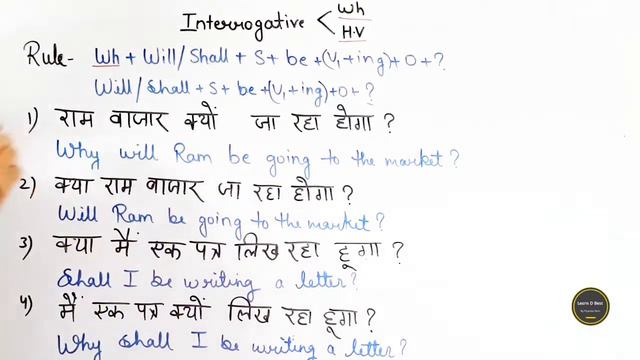 Interrogative < Wh
H.V
Rule- Wh + Will/Shall + S + be +(V₁+ing)+O+?
Will/Shall + S + be +(V₁+ing)+O+?
1) राम बाजार क्यों जा रहा होगा ?
Why will Ram be going to the market?
2) क्या राम बाजार जा रहा होगा ?
Will Ram be going to the market?
3) क्या मैं एक पत्र लिख रहा हूगा ?
Shall I be writing a letter?
4) मैं एक पत्र क्यों लिख रहा हूंगा ?
Why shall I be writing a letter?
Learn D Best